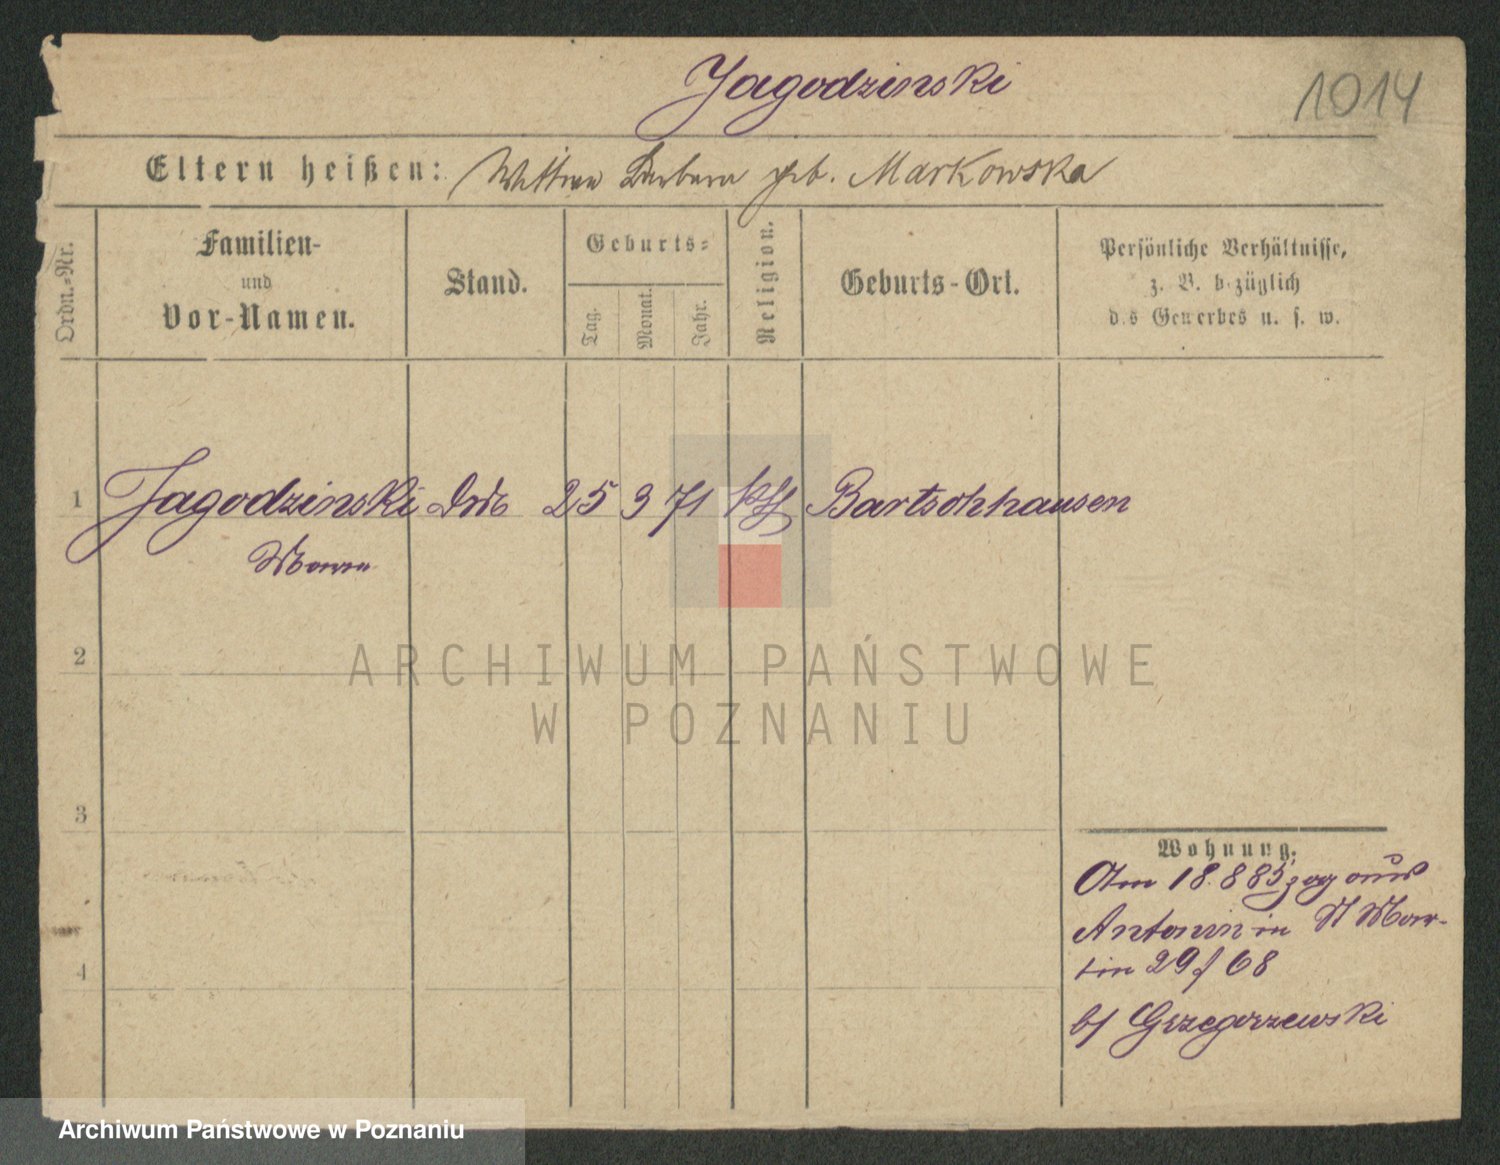 Jagodzinski
1014
Eltern heißen: Wittwe Barbara geb. Markowska
Ordn.-Nr.
Familien-
und
Vor-Namen.
Stand.
Geburts-
Tag.
Monat.
Jahr.
Religion.
Geburts-Ort.
Persönliche Verhältnisse,
z. B. bezüglich
des Gewerbes u. s. w.
1 Jagodzinski 25 3 71 kth Bartschhausen
2
ARCHIWUM PAŃSTWOWE
W POZNANIU
3
Wohnung.
Am 18.8 85 zog aus
Antonin in St Mar-
tin 29/68
b/ Grzegorzewski
4
Archiwum Państwowe w Poznaniu